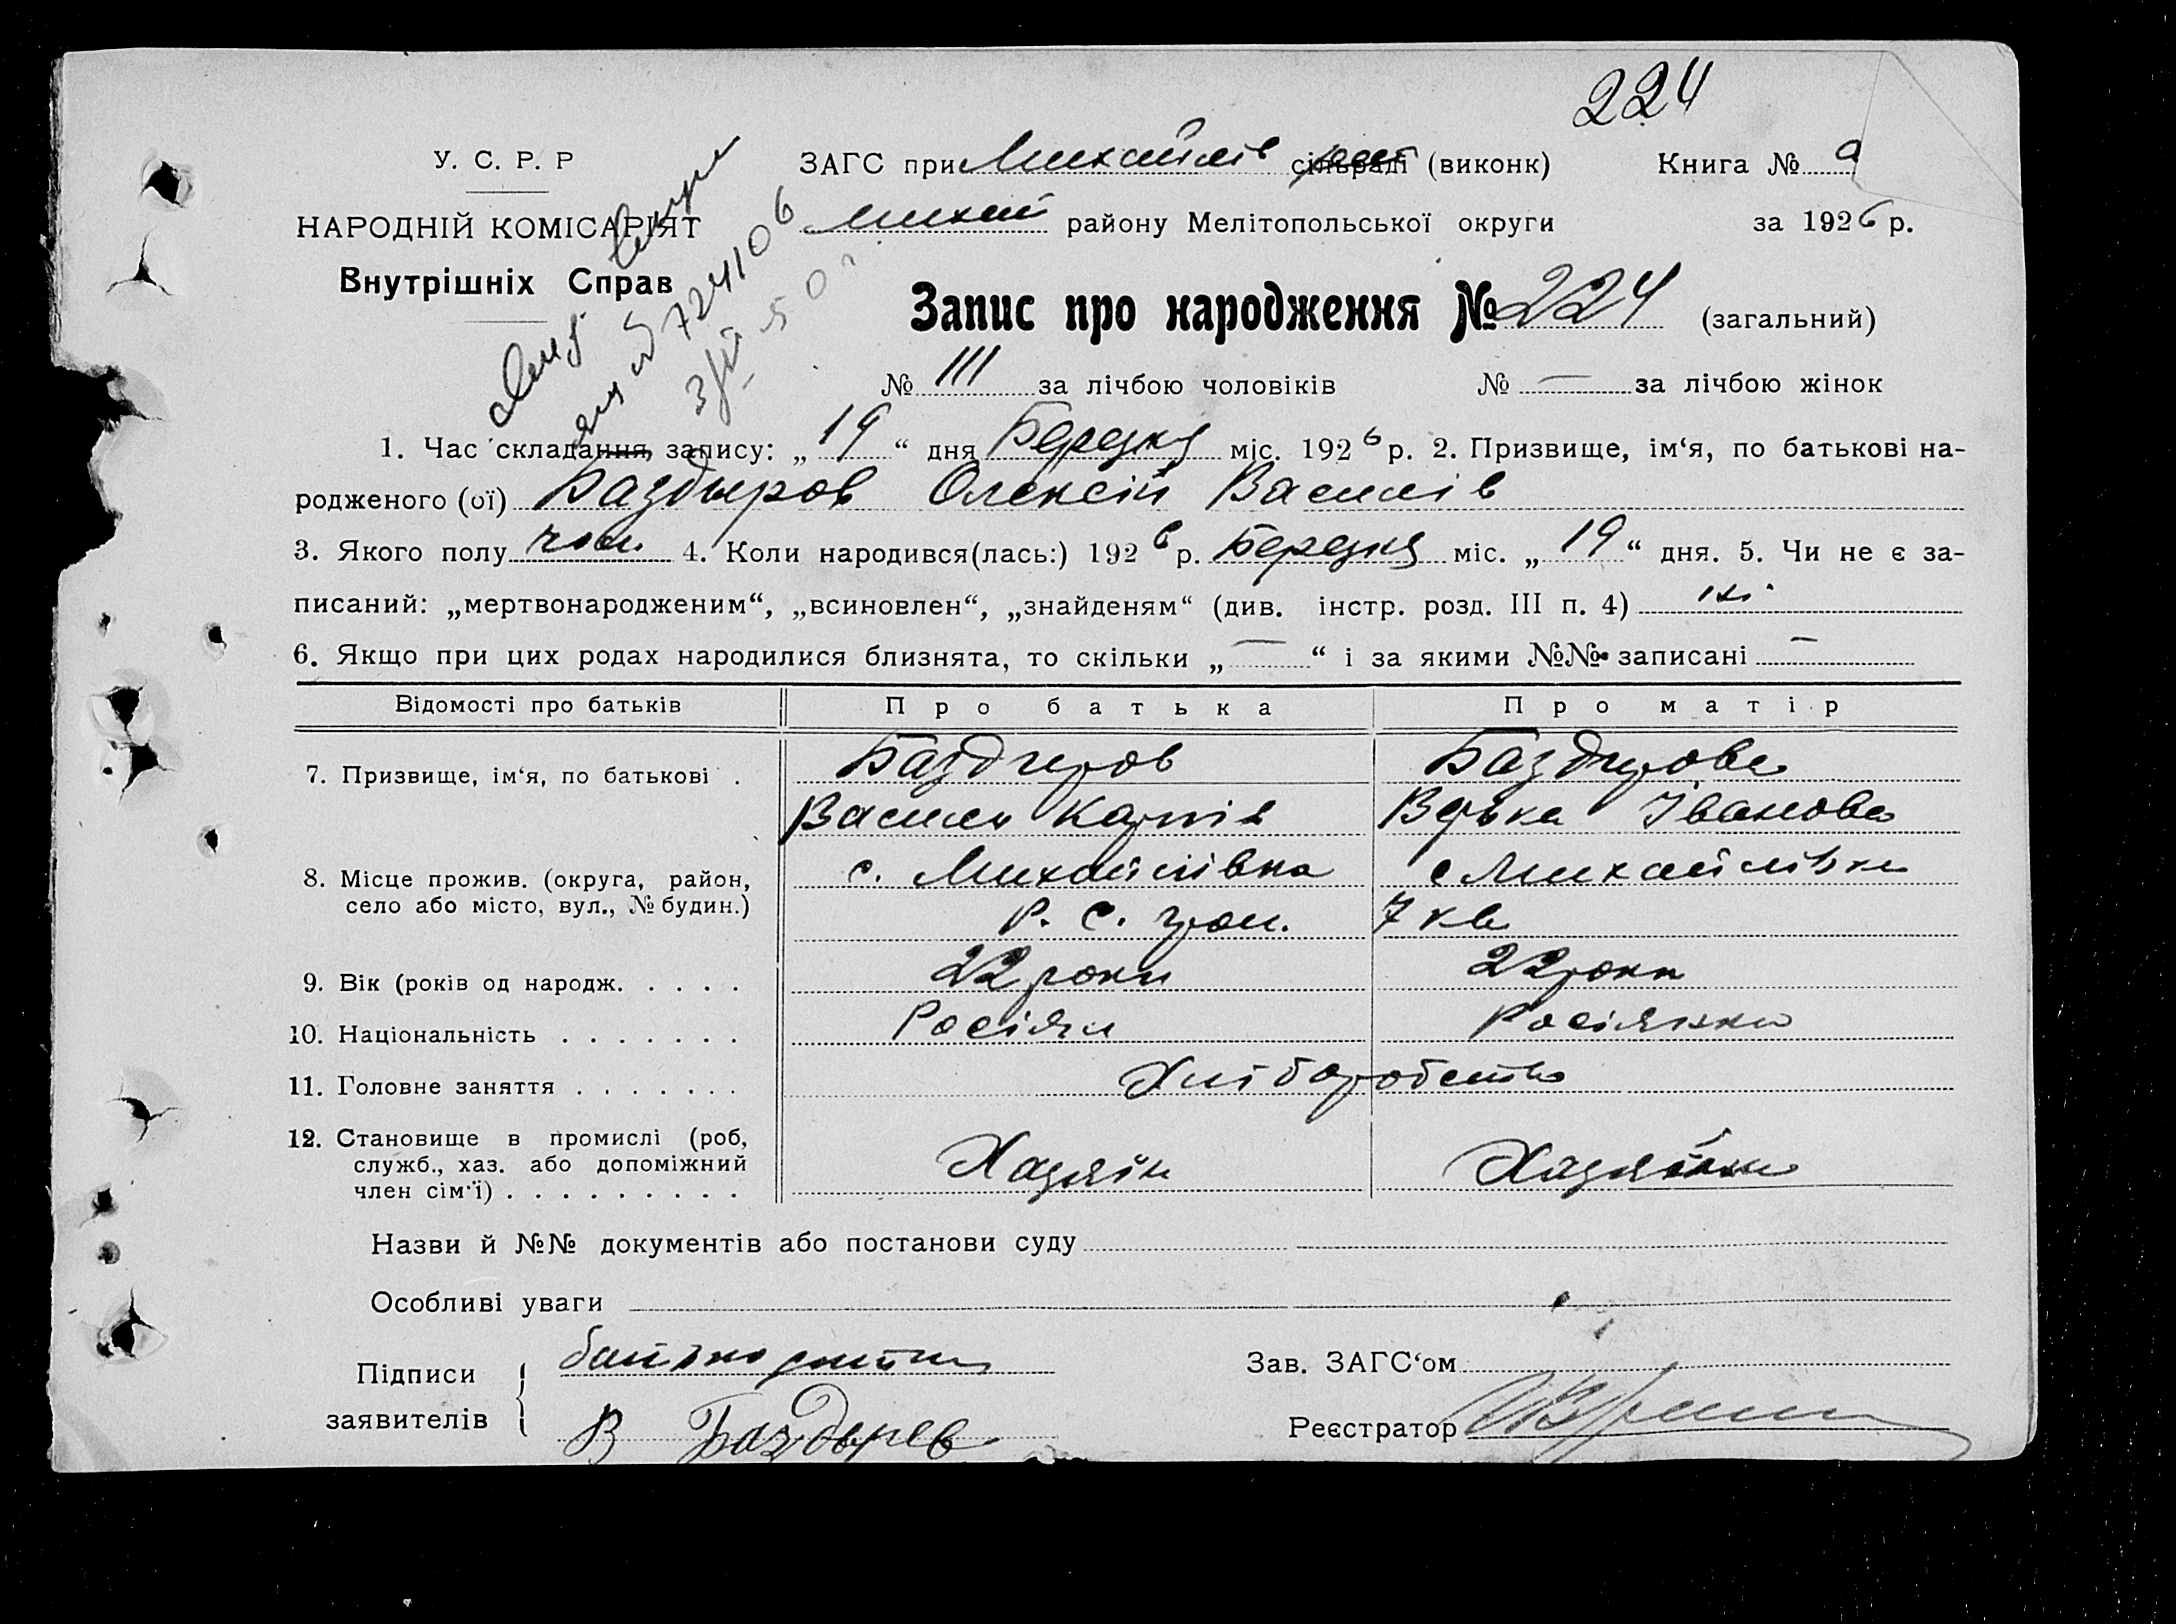 224
У. С. Р. Р
ЗАГС при Михайлів сільраді (виконк) Книга № а
НАРОДНІЙ КОМІСАРІЯТ
Михай району Мелітопольської округи за 1926 р.
Внутрішніх Справ
Запис про народження № 224 (загальний)
№ 111 за лічбою чоловіків № — за лічбою жінок
1. Час складання запису: „19“ дня Березня міс. 1926 р. 2. Призвище, ім‘я, по батькові на-
родженого (ої) Баздыров Олексій Василів
3. Якого полу чол. 4. Коли народився(лась:) 1926 р. Березня міс. „19“ дня. 5. Чи не є за-
писаний: „мертвонародженим“, „всиновлен“, „знайденям“ (див. інстр. розд. III п. 4) ні
6. Якщо при цих родах народилися близнята, то скільки „—“ і за якими №№ записані —
Відомості про батьків Про батька Про матір
7. Призвище, ім‘я, по батькові . Баздиров Баздирова
Василь Карпів Вірка Іванова
8. Місце прожив. (округа, район, с. Михайлівка с Михайлівка
село або місто, вул., № будин.) Р. С. гром. 7 кв
9. Вік (років од народж. . . . . 22 роки 22 роки
10. Національність . . . . . . . Росіян Росіянка
11. Головне заняття . . . . . . . Хліборобство
12. Становище в промислі (роб, Хазяїн Хазяйка
служб., хаз. або допоміжний
член сім‘ї) . . . . . . . . .
Назви й №№ документів або постанови суду
Особливі уваги
Підписи батько дитини Зав. ЗАГС‘ом
заявителів В Баздырев Реєстратор